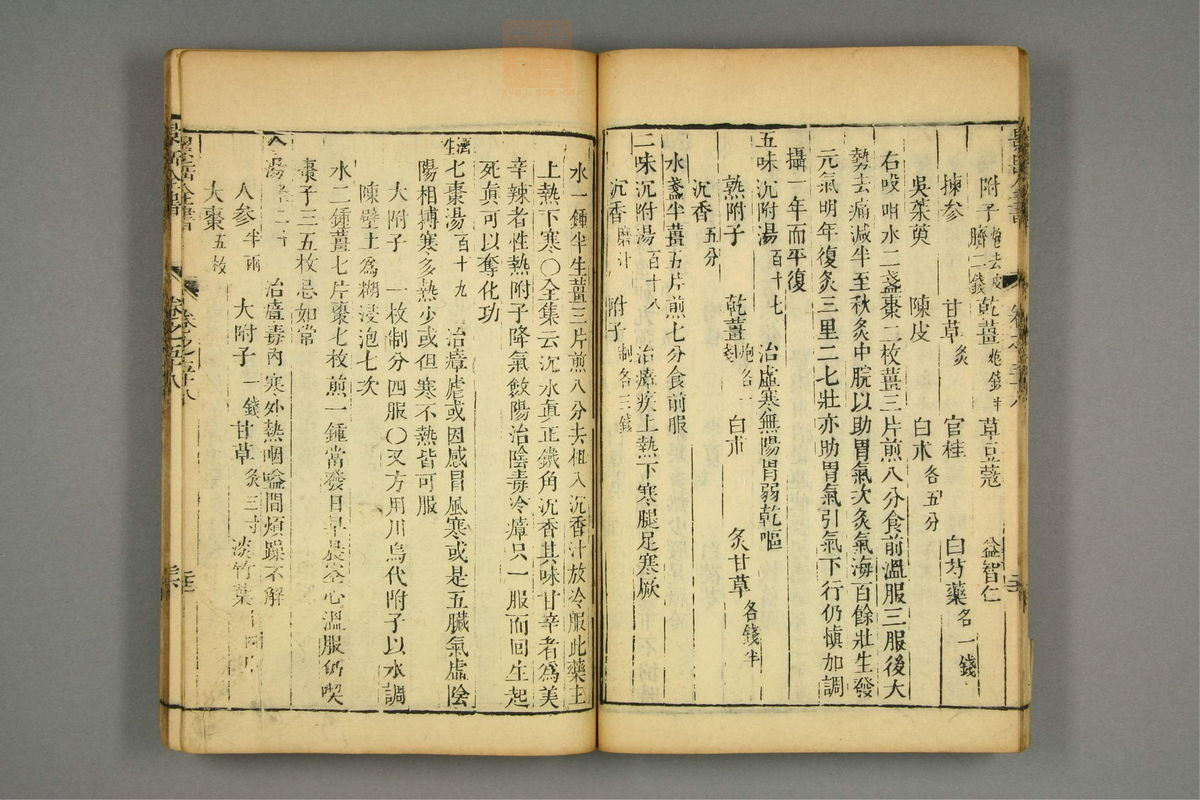 附子炮去皮臍二錢 乾薑炮錢半 草豆蔻 益智仁
揀參 甘草炙 官桂 白芍藥各一錢
吳茱萸 陳皮 白朮各五分
右㕮咀水二盞棗二枚薑三片煎八分食前溫服三服後大
勢去痛減半至秋灸中脘以助胃氣次灸氣海百餘壯生發
元氣明年復灸三里二七壯亦助胃氣引氣下行仍慎加調
攝一年而平復
五味沉附湯百十七 治虛寒無陽胃弱乾嘔
熟附子 乾薑炮各一 白朮 炙甘草各錢半
水盞半薑五片煎七分食前服
沉香五分
二味沉附湯百十八 治瘴疾上熱下寒腿足寒厥
沉香磨汁 附子制各三錢
水一鍾半生薑三片煎八分去柤入沉香汁放冷服此藥主
上熱下寒○全集云沉水真正鐵角沉香其味甘辛者為美
辛辣者性熱附子降氣斂陽治陰毒冷瘴只一服而回生起
死真可以奪化功
濟生七棗湯百十九 治瘴虐或因感冒風寒或是五臟氣虛陰
陽相搏寒多熱少或但寒不熱皆可服
大附子一枚制分四服○又方用川烏代附子以水調
陳壁土為糊浸泡七次
水二鍾薑七片棗七枚煎一鍾當發日早晨空心溫服仍喫
棗子三五枚忌如常
湯百二十 治瘴毒內寒外熱咽嗌間煩躁不解
人參半兩 大附子一錢 甘草炙三寸 淡竹葉
大棗五枚
卷之五十八